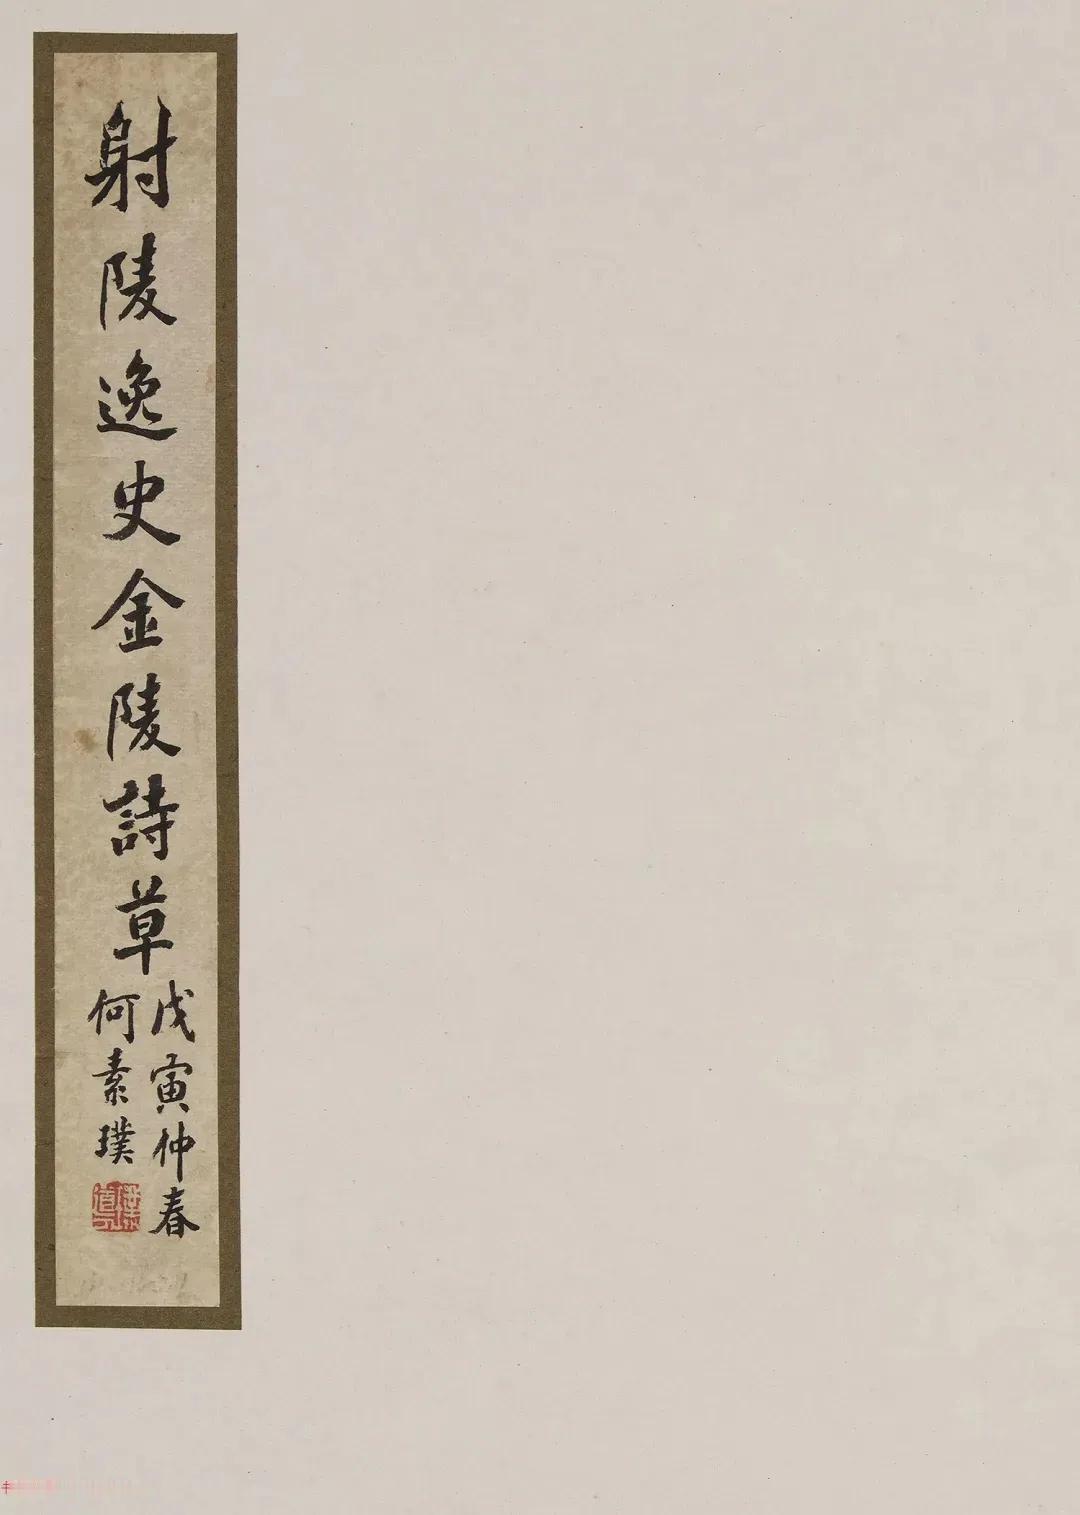 射陵逸史金陵詩草
戊寅仲春
何素璞